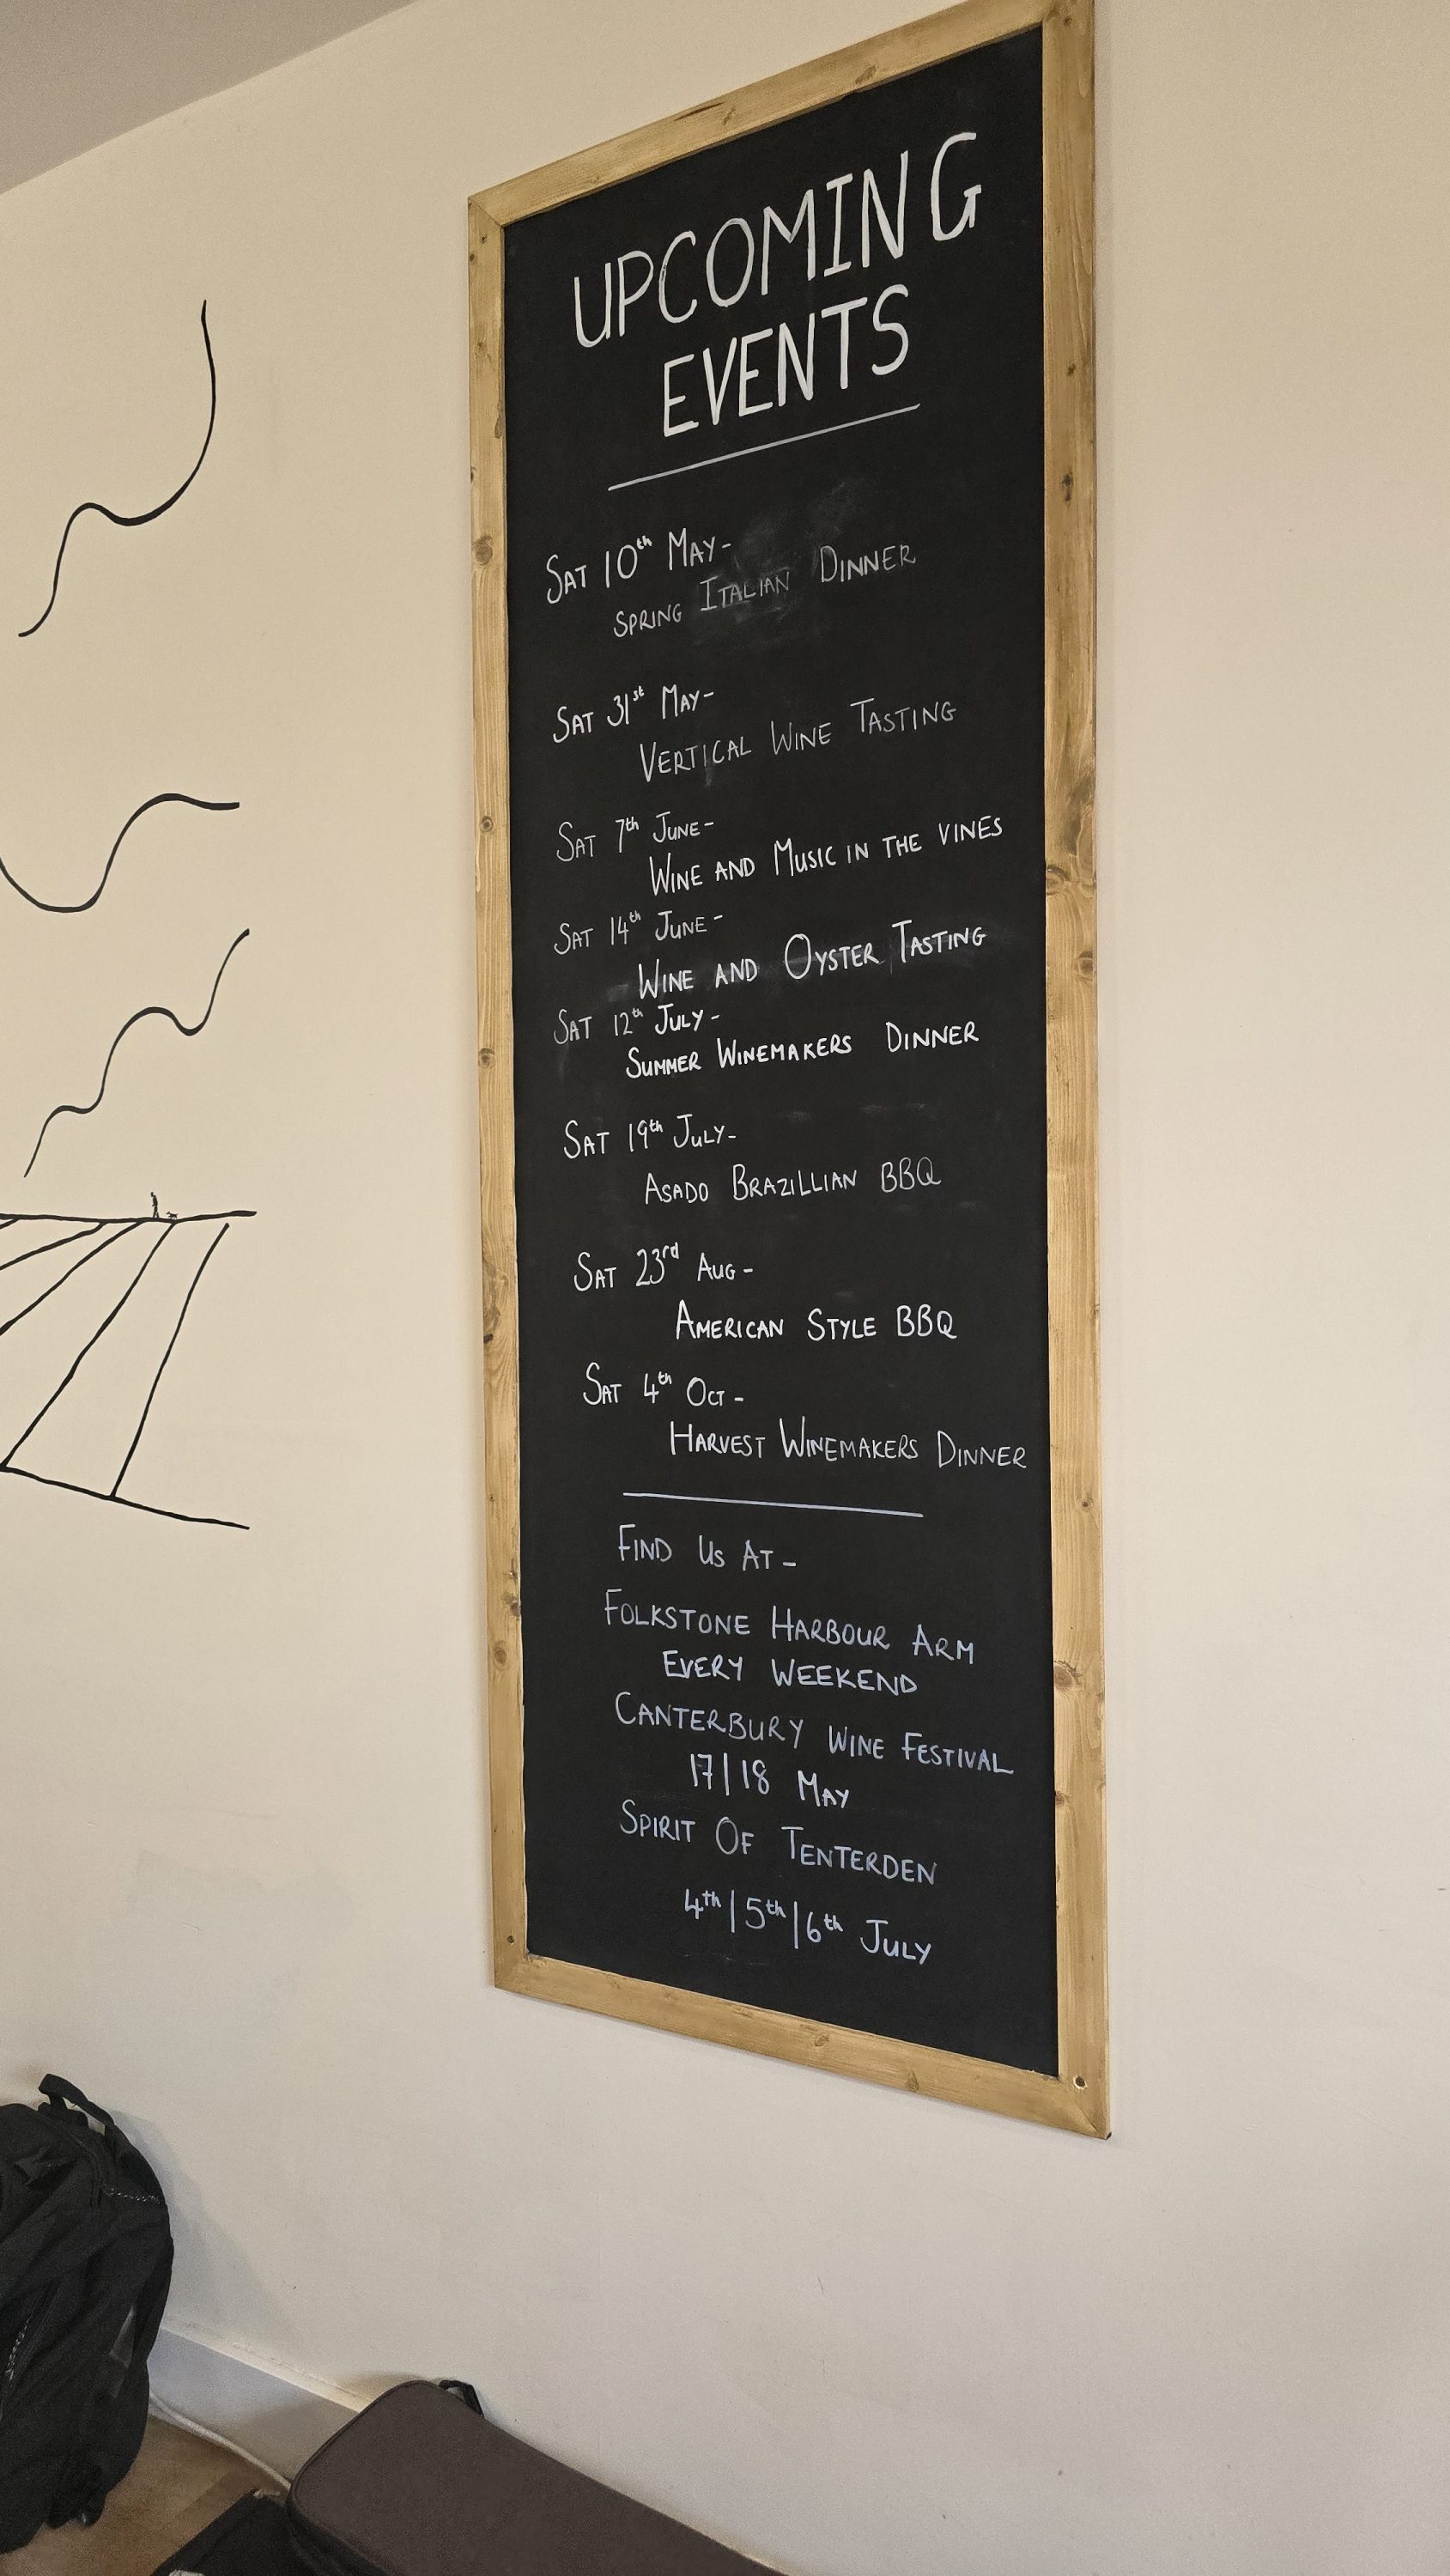 UPCOMING
EVENTS
SAT 10th MAY-
SPRING ITALIAN DINNER
SAT 31st MAY-
VERTICAL WINE TASTING
SAT 7th JUNE-
WINE AND MUSIC IN THE VINES
SAT 14th JUNE-
WINE AND OYSTER TASTING
SAT 12th JULY-
SUMMER WINEMAKERS DINNER
SAT 19th JULY-
ASADO BRAZILLIAN BBQ
SAT 23rd AUG-
AMERICAN STYLE BBQ
SAT 4th OCT-
HARVEST WINEMAKERS DINNER
FIND US AT-
FOLKSTONE HARBOUR ARM
EVERY WEEKEND
CANTERBURY WINE FESTIVAL
17|18 MAY
SPIRIT OF TENTERDEN
4th|5th|6th JULY